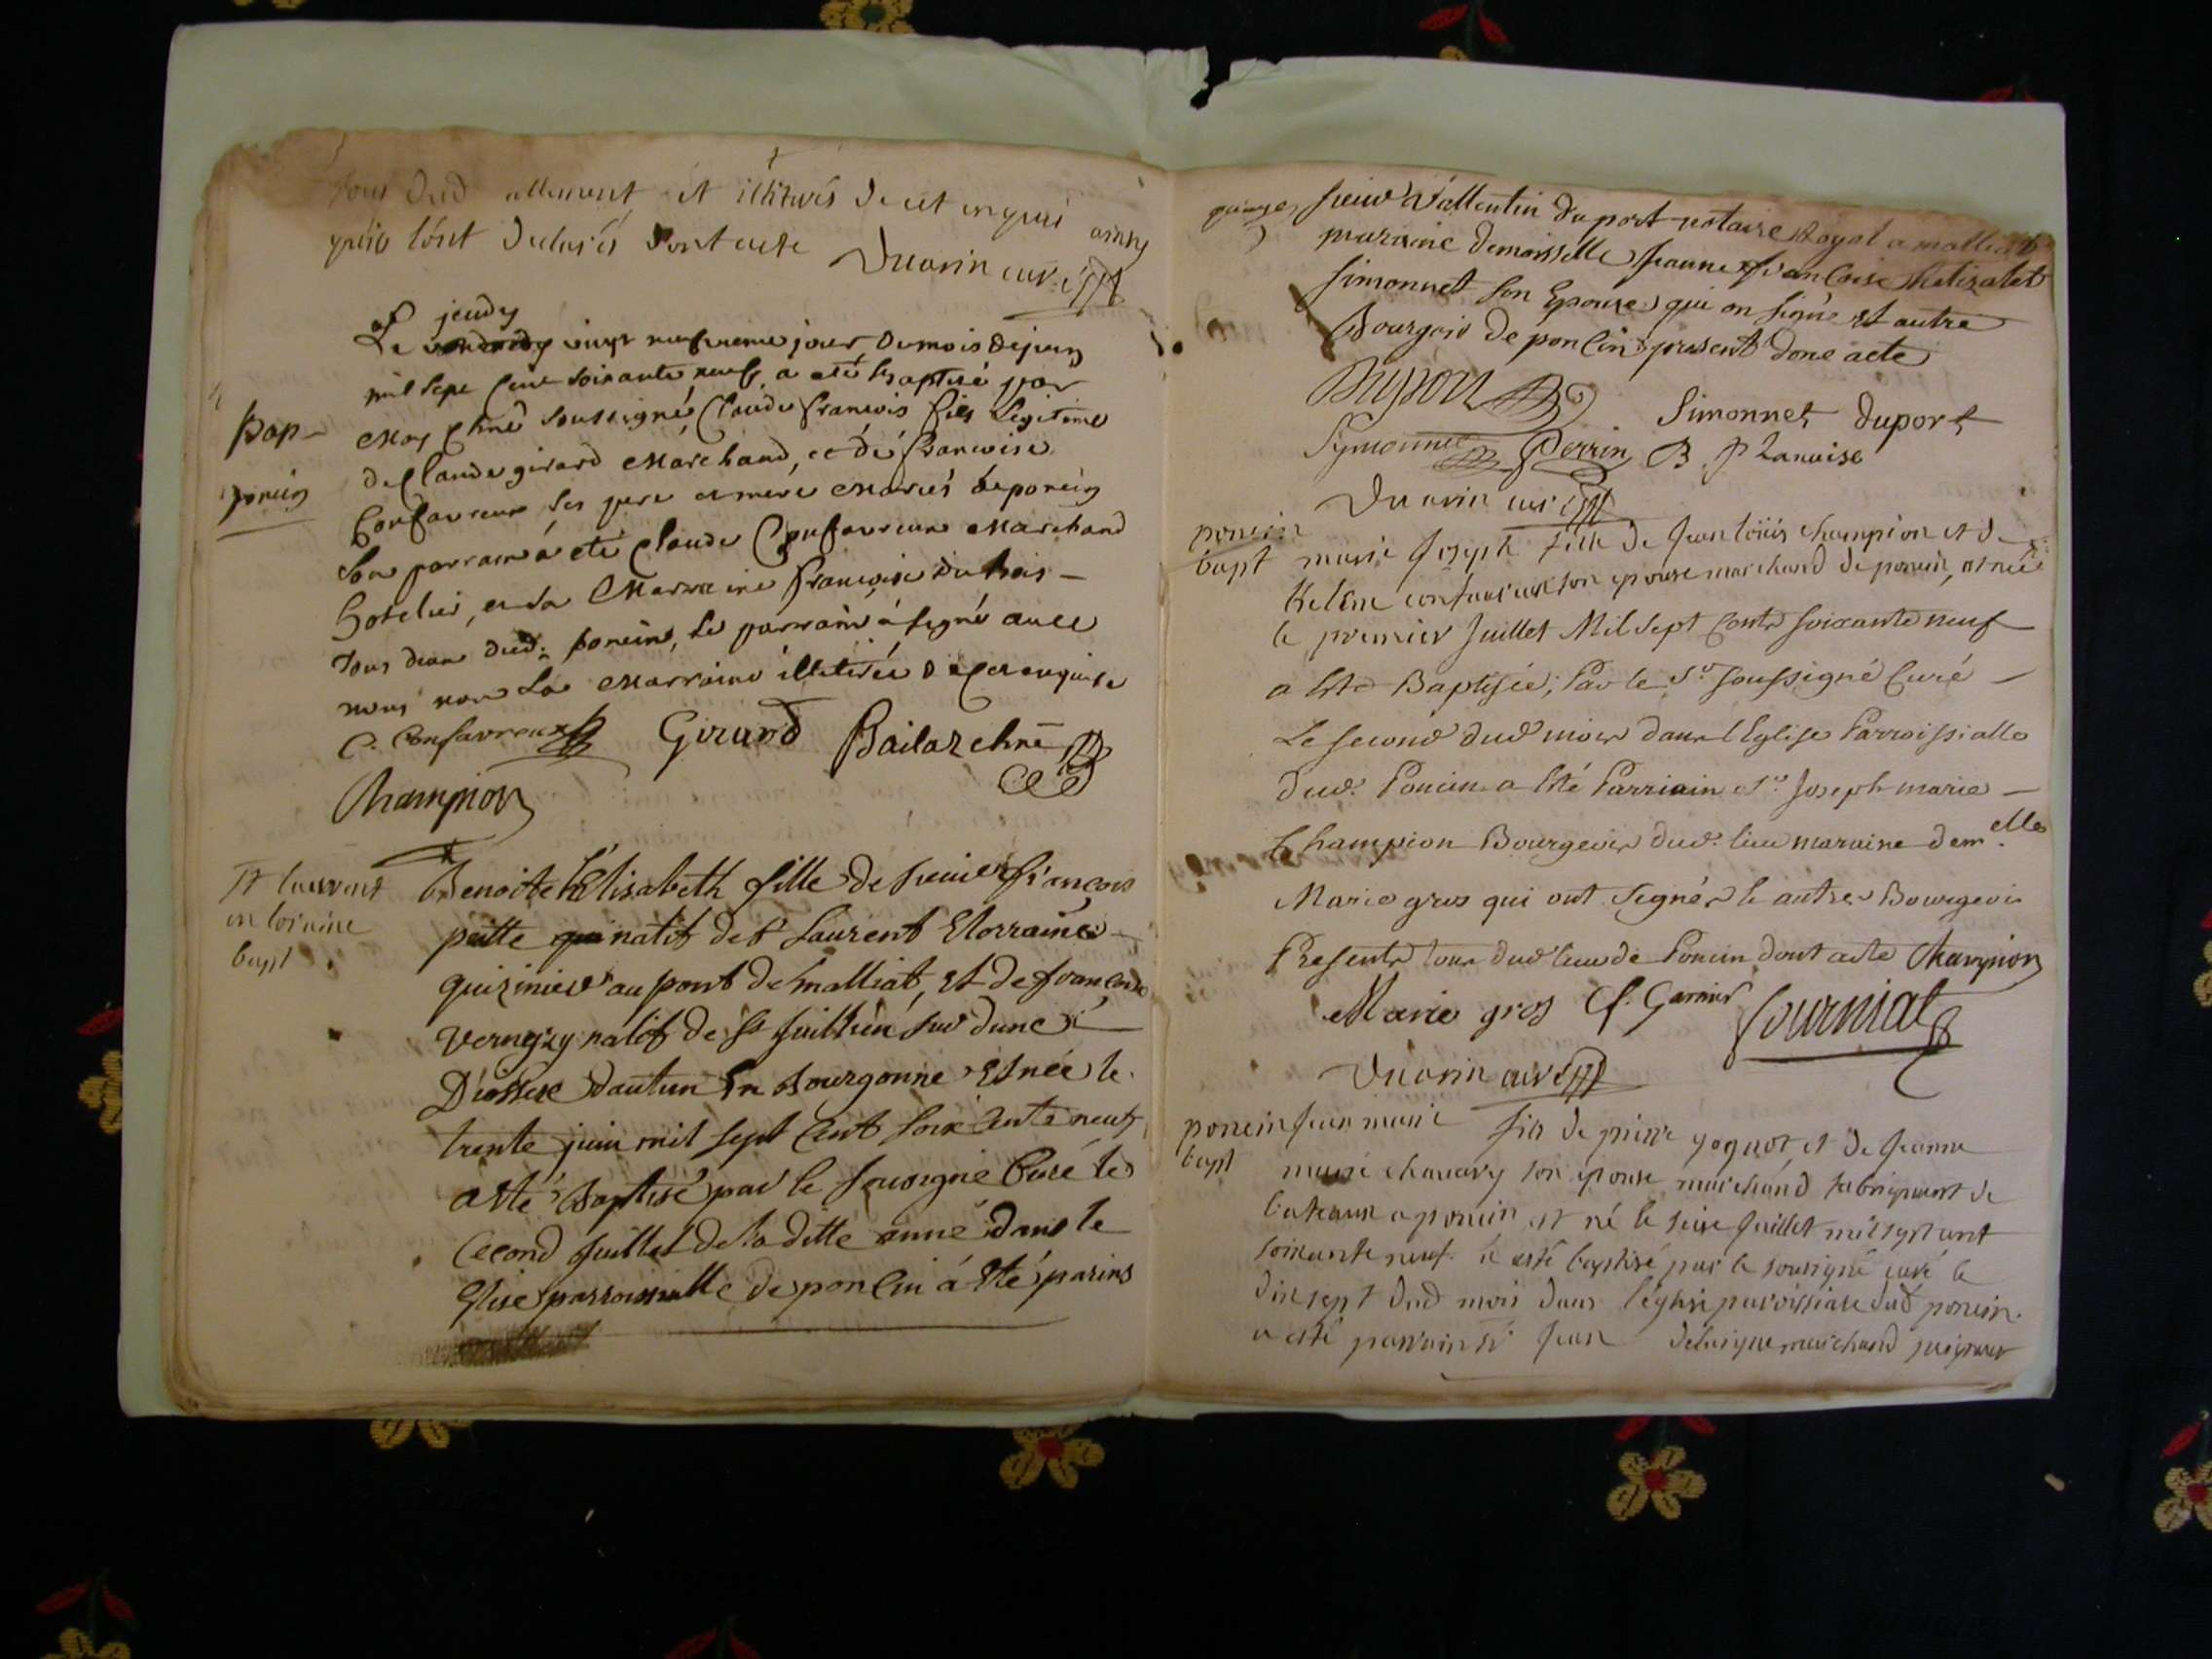 tous dud allement et illiterés de cet enquis ainsy
qu'ils l'ont declarés dont acte Duarin curé
jeudy
Le vingt neufvieme jour Du mois de juin
mil sept Cent soixante neuf, a eté baptisé par
Bap-
Moy soussigné, Claude françois fils Legitime
de Claude girard Marchand, et de françoise
poncin
Confavreux ses pere et mere Mariés de poncin
Son parrain a eté Claude Confavreux Marchand
hotelier, et sa Marraine françoise dubois -
tous deux dud. poncin, Le parrain a signé avec
nous non La Marraine illiterée de ce enquise
C. Confavreux Girard Bailaz
Champion
St laurent
en loraine
bapt
Benoite Elisabeth fille de sieur françois
petitte natif de St Laurent Elorraine
quizinier au pont de malliat, et de françoise
vernezy natif de St juillien sur dune
Diossese dautun En Bourgonne Est née le
trente juin mil sept Cent soixante neuf
a Eté Baptisé par le sousigné Curé le
Cecond juillet de la ditte anné dans le
Eglise parroissialle de poncin a Eté parins
sieur Vallentin duport notaire Royal a malliat
maraine demoisselle jeanne françoise
Simonnet son Epouse qui on signé et autre
Bourgois de poncin present done acte
Duport
Simonnet duport
Symonnet Perrin B. Planaise
Duarin curé
poncin
bapt
marie joseph fille de jean loüis champion et de
helene confavreux son epouse marchand de poncin, est née
le premier juillet Mil sept Cents soixante neuf
a Eté Baptisée, Par le Sr soussigné Curé -
Le second dud mois dans l'Eglise Parroissialle
dud. Poncin a Eté Parriain Sr. Joseph marie -
Champion Bourgeois dud. lieu maraine demelle
Marie gros qui ont Signés & autres Bourgeois
Presents tous dud lieu de Poncin dont acte Champion
Marie gros C. Garnier Fourniat
Duarin curé
poncin
bapt
jean marie fils de pierre goguot et de jeanne
marie chavary son epouse marchand fabriquant de
bateaux a poncin est né le seize juillet mil sept cent
soixante neuf. a esté baptisé par le sousigné curé le
dix sept dud mois dans l'eglise paroissiale dud poncin.
a esté parrain Sr jean delaigue marchand